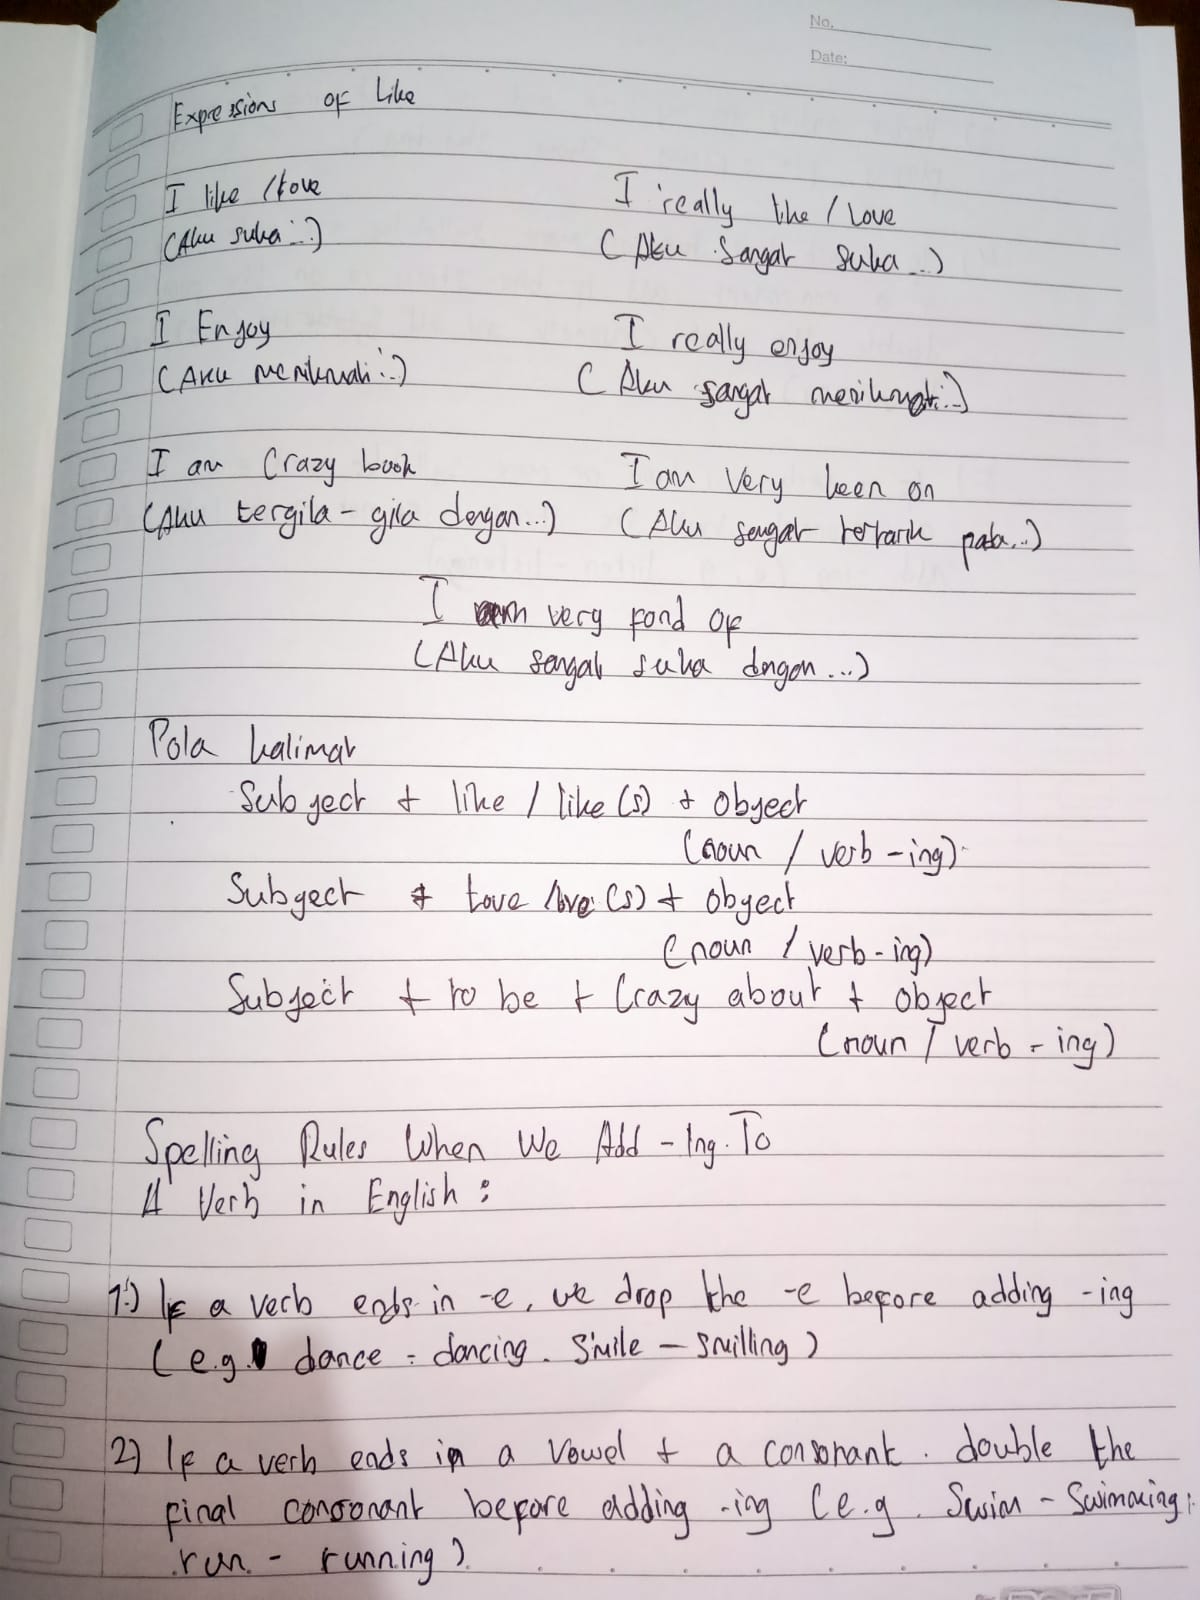 No.
Date:
Expressions of Like
I like / Love
I really like / Love
(Aku suka...)
(Aku Sangat Suka...)
I Enjoy
I really enjoy
(Aku menikmati...)
(Aku sangat menikmati...)
I am Crazy book
I am Very keen on
(Aku tergila - gila dengan...)
(Aku sangat tertarik pada...)
I am very fond of
(Aku sangat suka dengan...)
Pola kalimat
Subyect + like / like (s) + Obyect
(noun / verb - ing)
Subyect + Love love (s) + obyect
(noun / verb - ing)
Subject + to be + Crazy about + object
(noun / verb - ing)
Spelling Rules When We Add - Ing. To
A Verb in English :
1.) If a verb ends in -e, we drop the -e before adding -ing
(e.g. dance - dancing. Smile - Smilling)
2) If a verb ends in a vowel + a consonant. double the
final consonant before adding -ing (e.g. Swim - Swimming;
run - running).